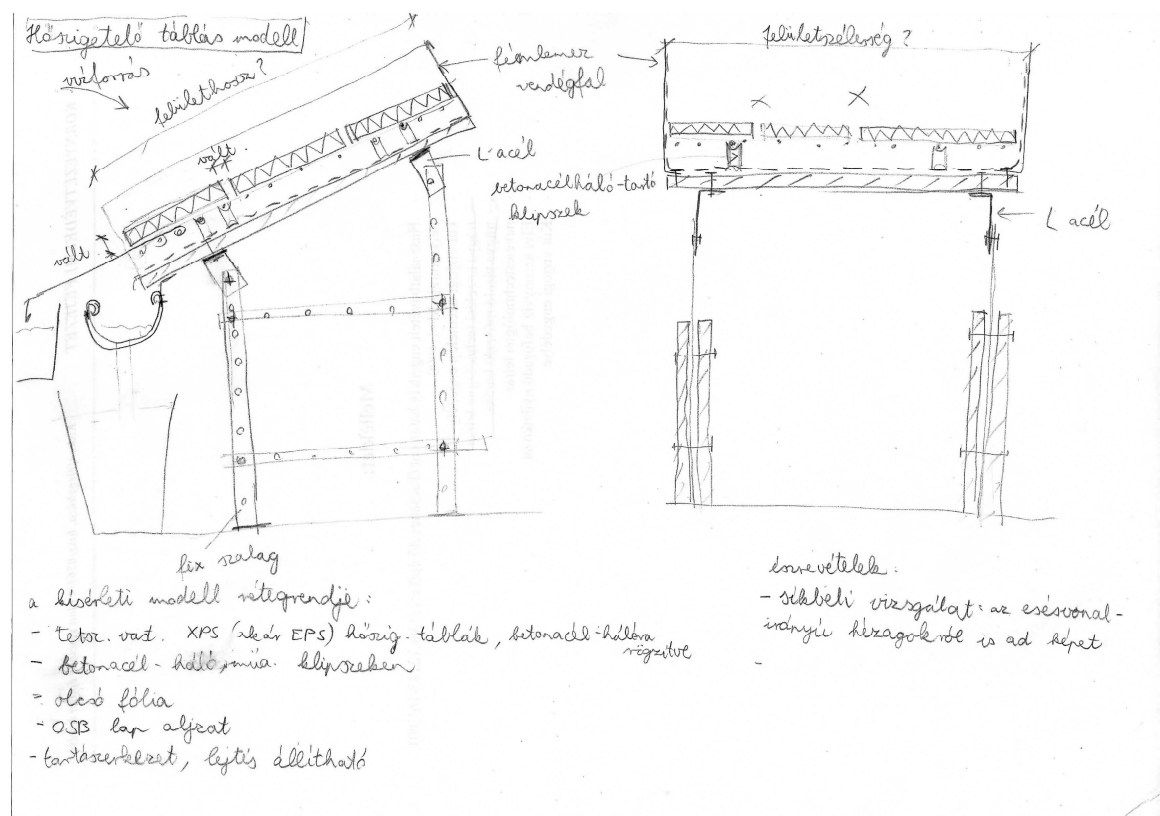 Hőszigetelő táblás modell
vízforrás
felülethossz?
vált.
vált
fémlemez
vendégfal
L acél
betonacélháló-tartó
klipszek
felületszélesség?
L acél
fix szalag
a kísérleti modell rétegrendje:
- tetsz. vast. XPS (akár EPS) hőszig. táblák, betonacél-hálóra
rögzítve
- betonacél-háló, műa. klipszeken
- olcsó fólia
- OSB lap aljzat
- tartószerkezet, lejtés állítható
észrevételek:
- síkbeli vizsgálat: az esésvonal-
irányú hézagokról is ad képet
-